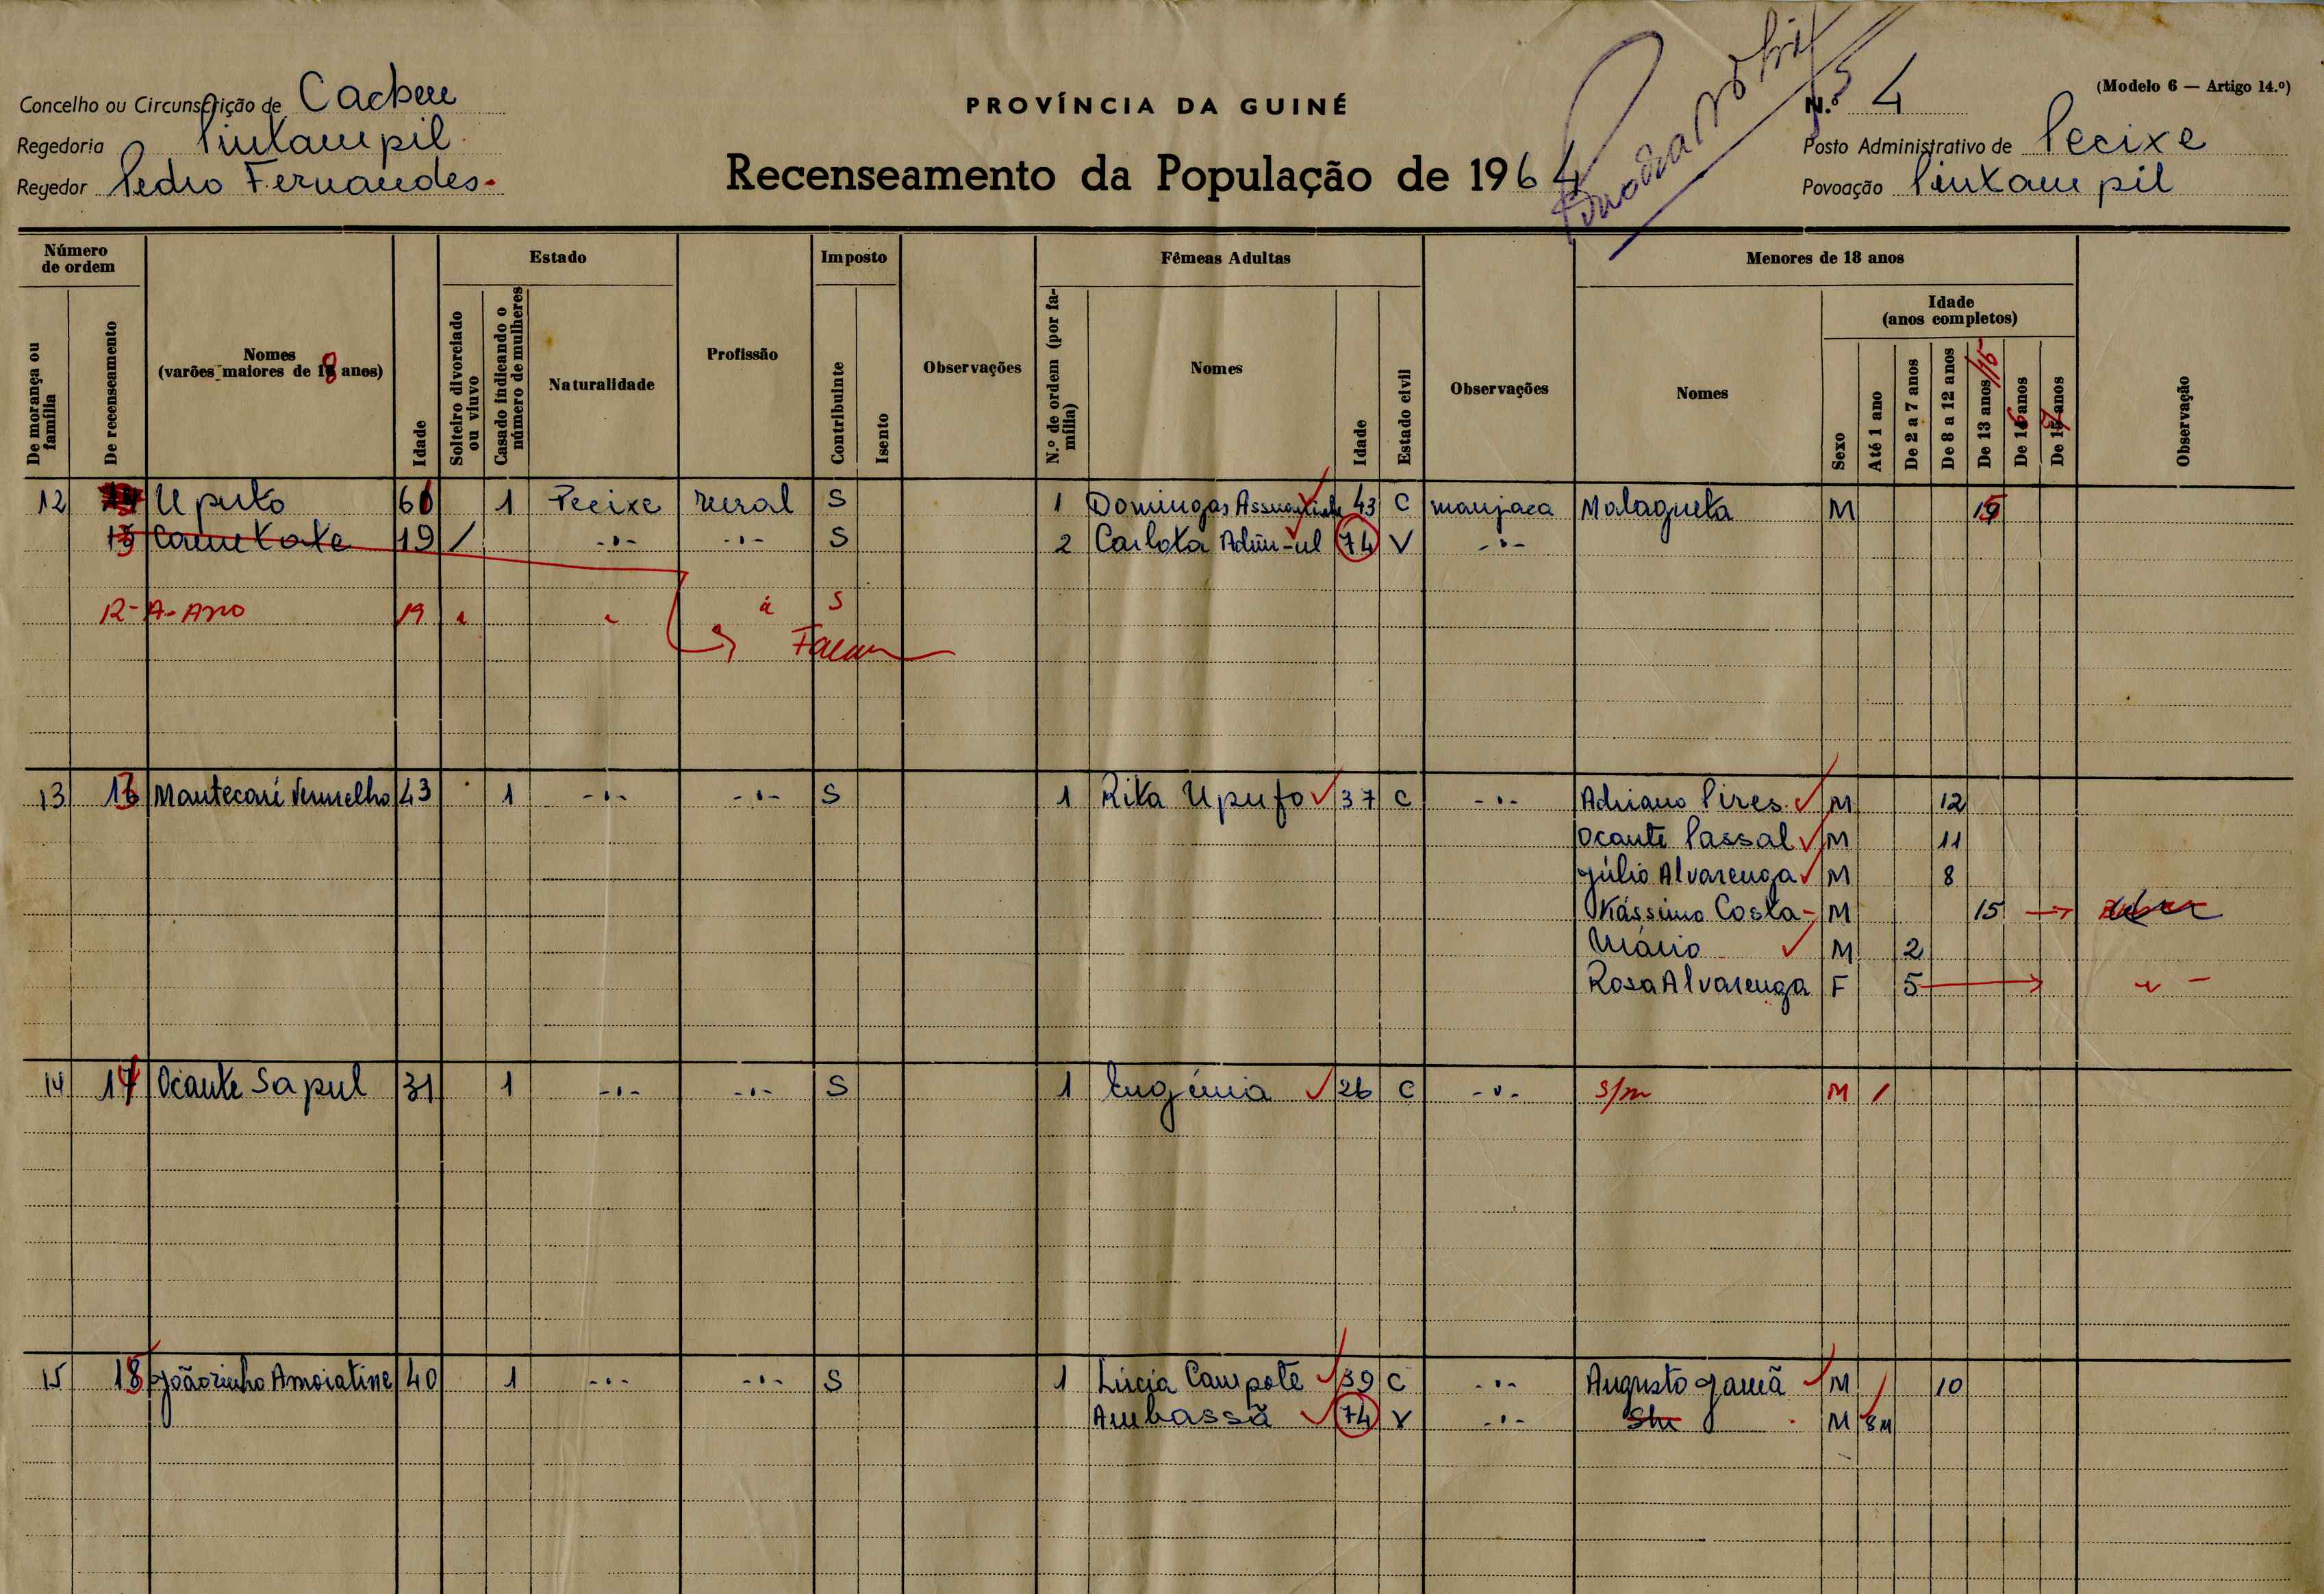 Concelho ou Circunscrição de Cacheu
Regedoria Pintampil
Regedor Pedro Fernandes
PROVÍNCIA DA GUINÉ
Recenseamento da População de 1964
(Modelo 6 — Artigo 14.º)
N.º 4
Posto Administrativo de Pecixe
Povoação Pintampil
Número de ordem
De morança ou família
De recenseamento
Nomes
(varões maiores de 18 anos)
Idade
Estado
Solteiro divorciado ou viuvo
Casado indicando o número de mulheres
Naturalidade
Profissão
Imposto
Contribuinte
Isento
Observações
Fêmeas Adultas
N.º de ordem (por família)
Nomes
Idade
Estado civil
Observações
Menores de 18 anos
Nomes
Sexo
Idade
(anos completos)
Até 1 ano
De 2 a 7 anos
De 8 a 12 anos
De 13 anos/15
De 16 anos
De 17 anos
Observação
12 Uputo 60 1 Pecixe rural S 1 Domingas 43 C manjaca Malagueta M 15
13 Camtote 19 / -"- -"- S 2 Carlota 74 V -"-
12-A-Ano 19 " " " S
13 13 Mantecari Vermelho 43 1 -"- -"- S 1 Rita Upufo 37 C -"- Adriano Pires M 12
Ocante Passal M 11
Júlio Alvarenga M 8
Kássimo Costa - M 15
Mário M 2
Rosa Alvarenga F 5 " -
14 14 Ocante Sapul 31 1 -"- -"- S 1 Eugénia 26 C -"- s/m M /
15 15 Joãozinho Amoiatine 40 1 -"- -"- S 1 Lúcia Campote 39 C -"- Augusto Gamã M 10
Ambassã 74 V -"- M 8m